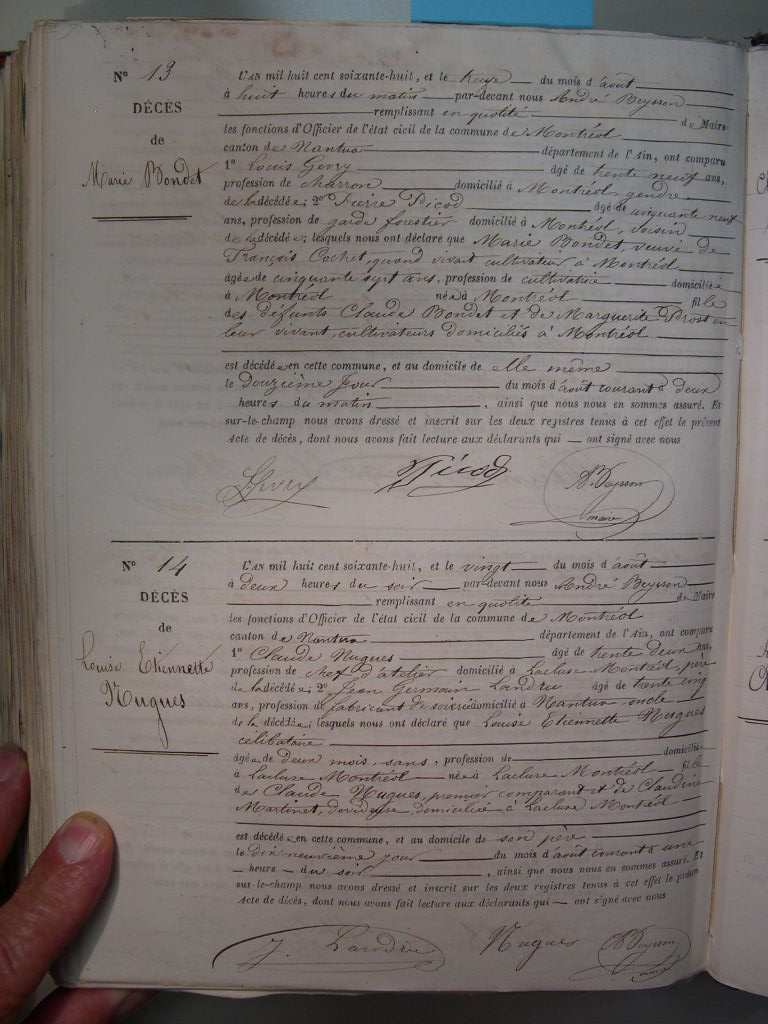 N° 13
DÉCÈS
de
Marie Bondet
L'AN mil huit cent soixante-huit, et le treize du mois d'août
à huit heures du matin par-devant nous André Beysson
remplissant en qualité de Maire
les fonctions d'Officier de l'état civil de la commune de Montréal
canton de Nantua département de l'Ain, ont comparu
1° Louis Gevry âgé de trente neuf ans,
profession de charron domicilié à Montréal, gendre
de la décédée; 2° Pierre Picod âgé de cinquante neuf
ans, profession de garde forestier domicilié à Montréal, voisin
de la décédée; lesquels nous ont déclaré que Marie Bondet, veuve de
François Cochet, quand vivait cultivateur à Montréal
âgée de cinquante sept ans, profession de cultivatrice domiciliée
à Montréal née à Montréal fille
des défunts Claude Bondet et de Marguerite Prost en
leur vivant, cultivateurs domiciliés à Montréal
est décédée en cette commune, et au domicile de elle même
le douzième jour du mois d'août courant à deux
heures du matin, ainsi que nous nous en sommes assuré. Et
sur-le-champ nous avons dressé et inscrit sur les deux registres tenus à cet effet le présent
Acte de décès, dont nous avons fait lecture aux déclarants qui — ont signé avec nous
LGevry Picod A. Beysson
maire
N° 14
DÉCÈS
de
Louise Etiennette
Nugues
L'AN mil huit cent soixante-huit, et le vingt du mois d'août
à deux heures du soir par-devant nous André Beysson
remplissant en qualité de Maire
les fonctions d'Officier de l'état civil de la commune de Montréal
canton de Nantua département de l'Ain, ont comparu
1° Claude Nugues âgé de trente deux ans,
profession de chef d'atelier domicilié à Lacluse Montréal, père
de la décédée; 2° Jean Germain Landru âgé de trente cinq
ans, profession de fabricant de soieries domicilié à Nantua oncle
de la décédée; lesquels nous ont déclaré que Louise Etiennette Nugues
célibataire
âgée de deux mois, sans, profession de domiciliée
à Lacluse Montréal née à Lacluse Montréal fille
de Claude Nugues, premier comparant et de Claudine
Martinet, dévideuse, domiciliée à Lacluse Montréal
est décédée en cette commune, et au domicile de son père
le dix neuvième jour du mois d'août courant à une
heure du soir, ainsi que nous nous en sommes assuré. Et
sur-le-champ nous avons dressé et inscrit sur les deux registres tenus à cet effet le présent
Acte de décès, dont nous avons fait lecture aux déclarants qui — ont signé avec nous
J. Nugues A. Beysson
maire